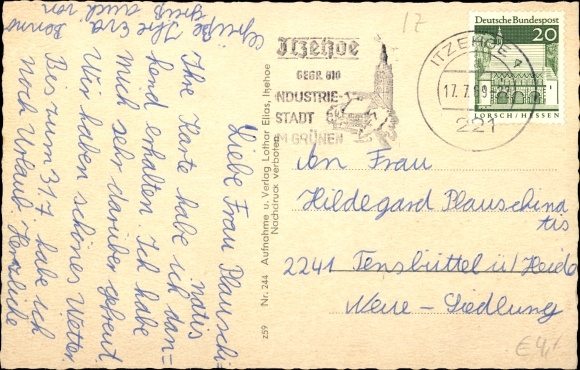 17
Deutsche Bundespost
20
LORSCH/HESSEN
ITZEHOE
17.7.69
221
Itzehoe
GEGR. 810
INDUSTRIE-
STADT
IM GRÜNEN
Liebe Frau Plauschi-
natis
Ihre Karte habe ich dan-
kend erhalten. Ich habe
mich sehr darüber gefreut
Wir haben schönes Wetter
Bis zum 31.7 habe ich
noch Urlaub Herzliche
Grüße Ihre Erna
Gruß auch von
Benno
z59 Nr. 244 Aufnahme u. Verlag Lothar Elias, Itzehoe
Nachdruck verboten
An Frau
Hildegard Plauschina
tis
2241 Tensbüttel ü/Heide
Neue-Siedlung
€4,-